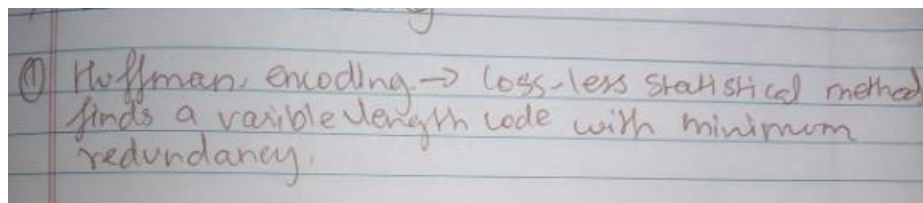 ① Huffman encoding → loss-less statistical method
finds a varible length code with minimum
redundancy.